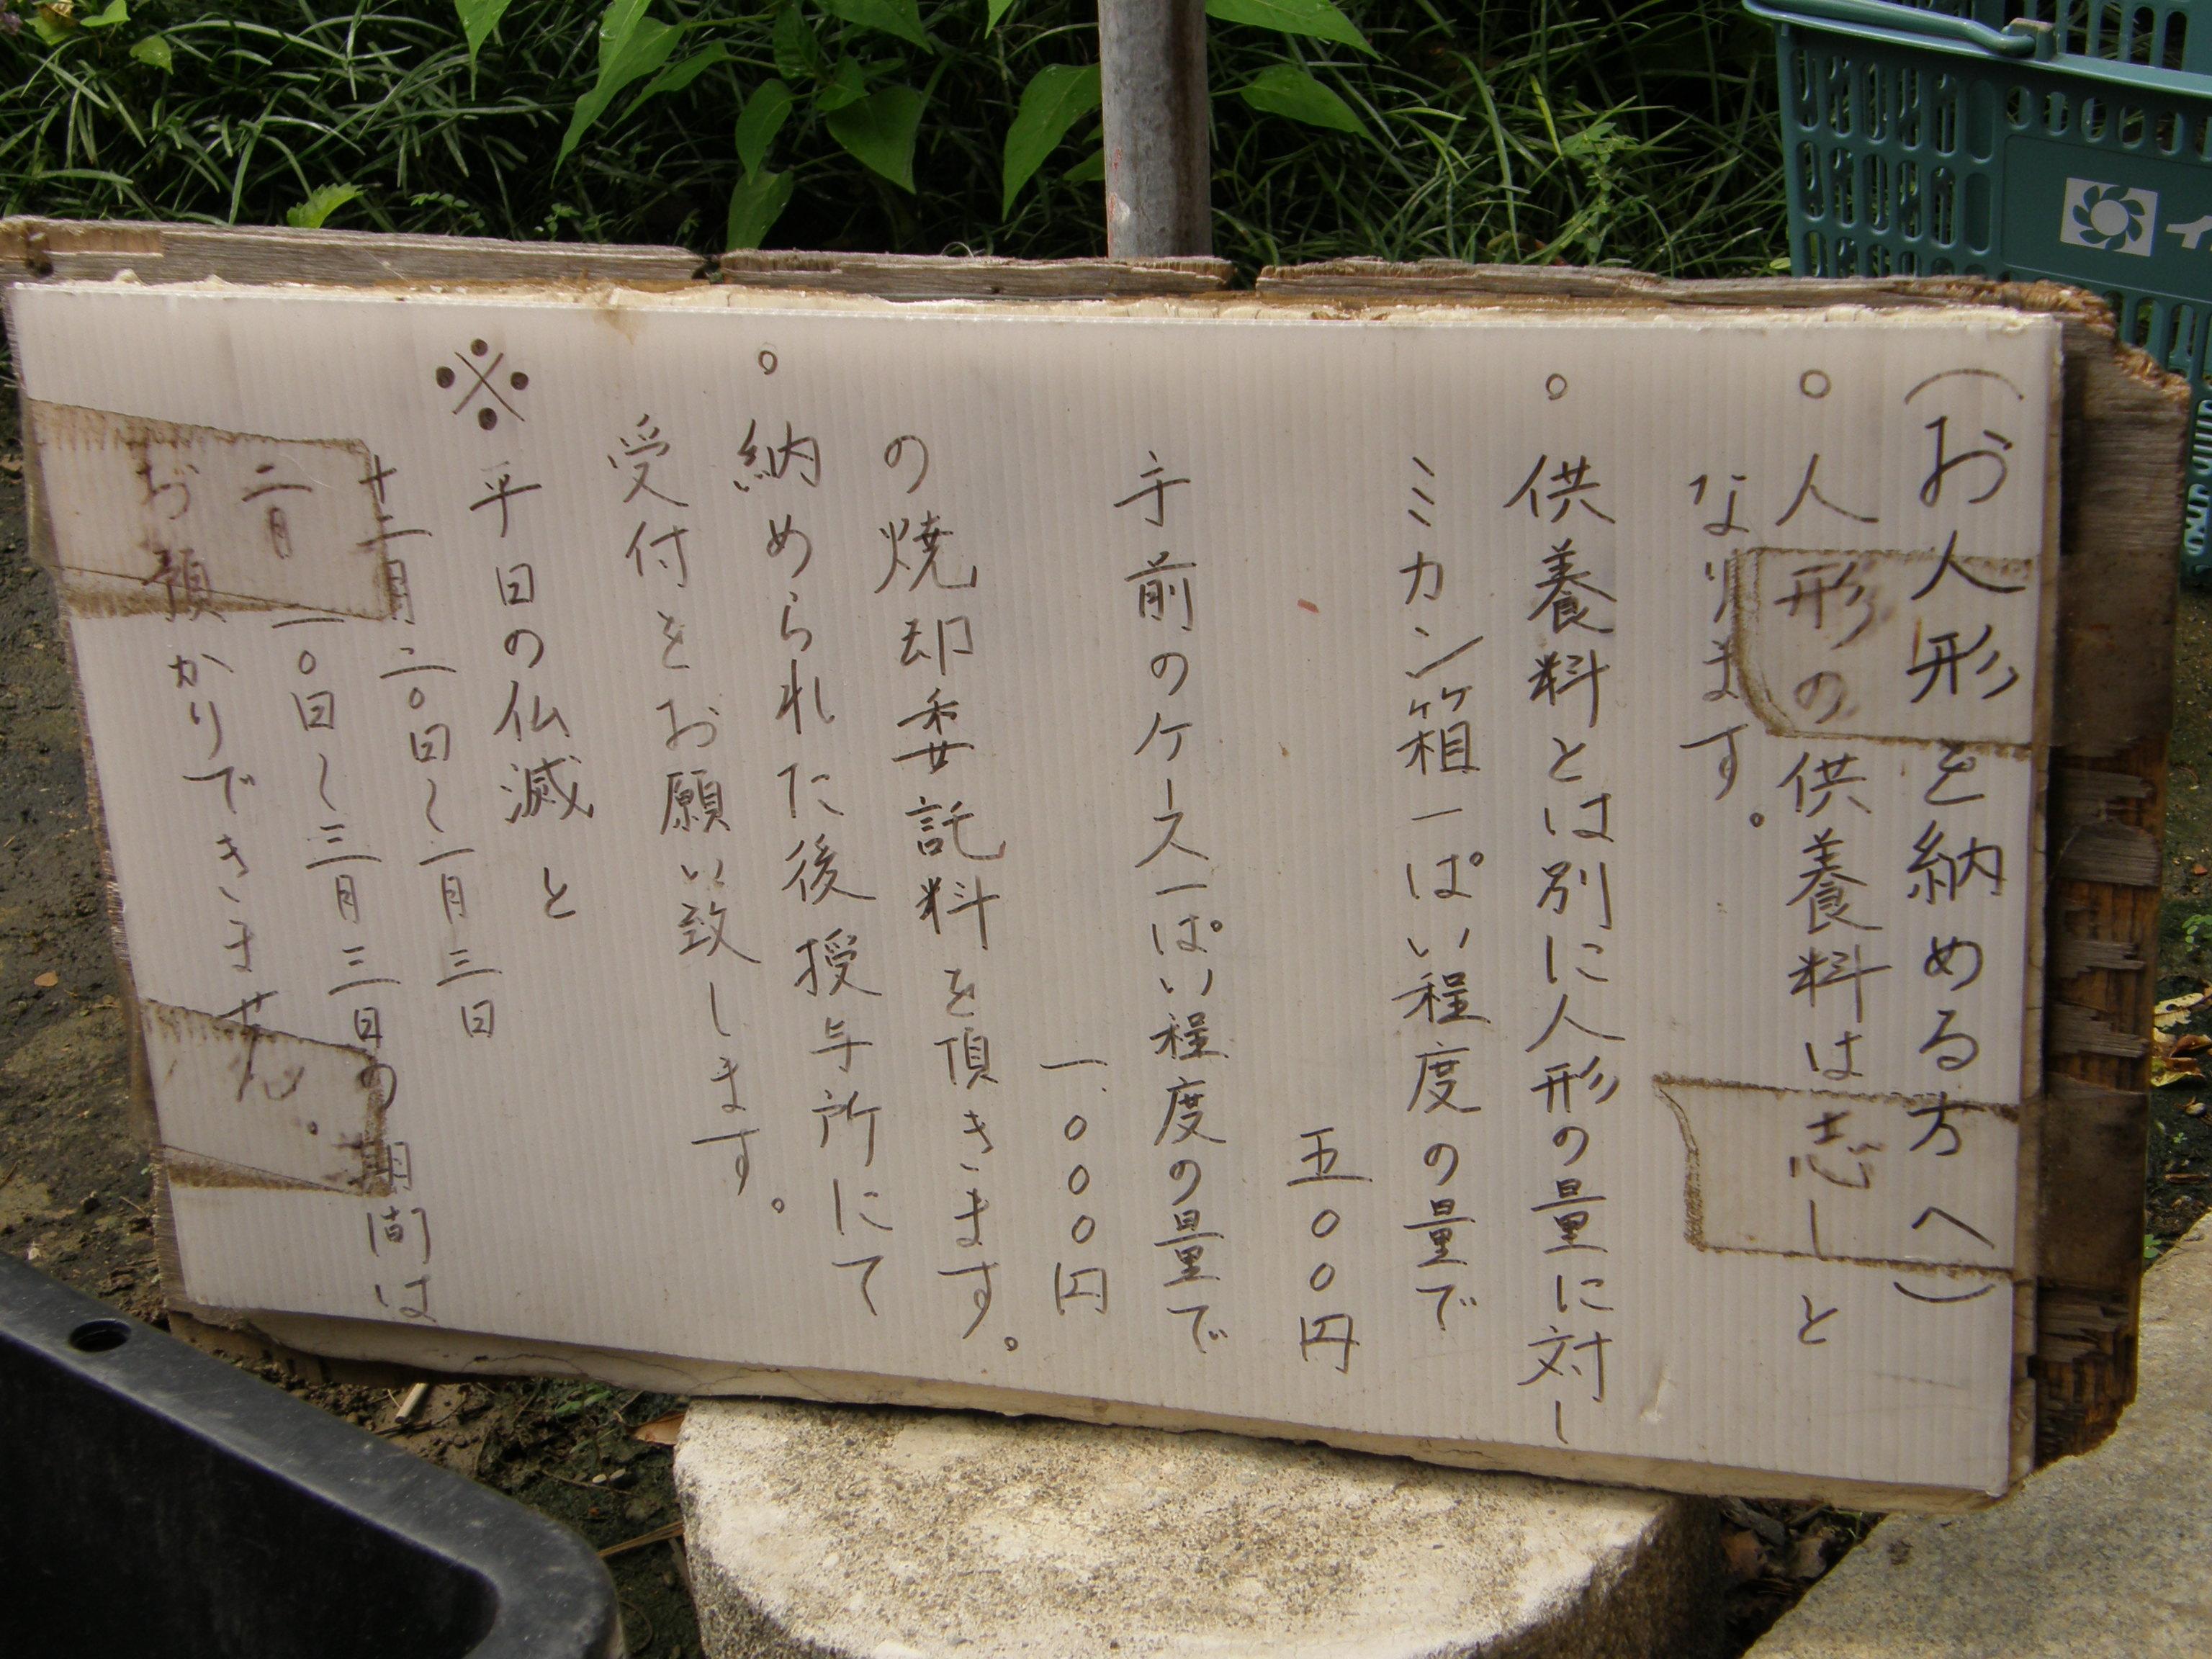 (お人形を納める方へ)
○人形の供養料は志しと
なります。
○供養料とは別に人形の量に対し
ミカン箱一ぱい程度の量で
五〇〇円
手前のケース一ぱい程度の量で
一、〇〇〇円
の焼却委託料を頂きます。
○納められた後授与所にて
受付をお願い致します。
※平日の仏滅と
十二月二〇日〜一月三日
二月一〇日〜三月三日の期間は
お預かりできません。
イ